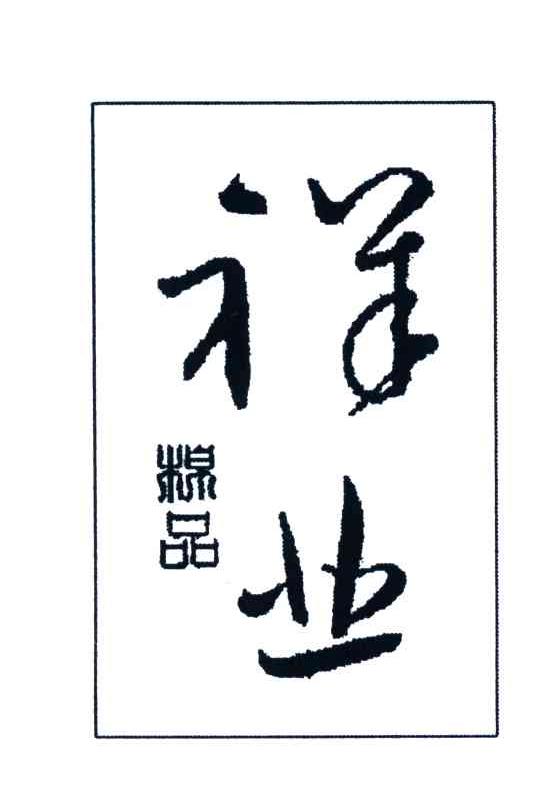 祥业
棉品